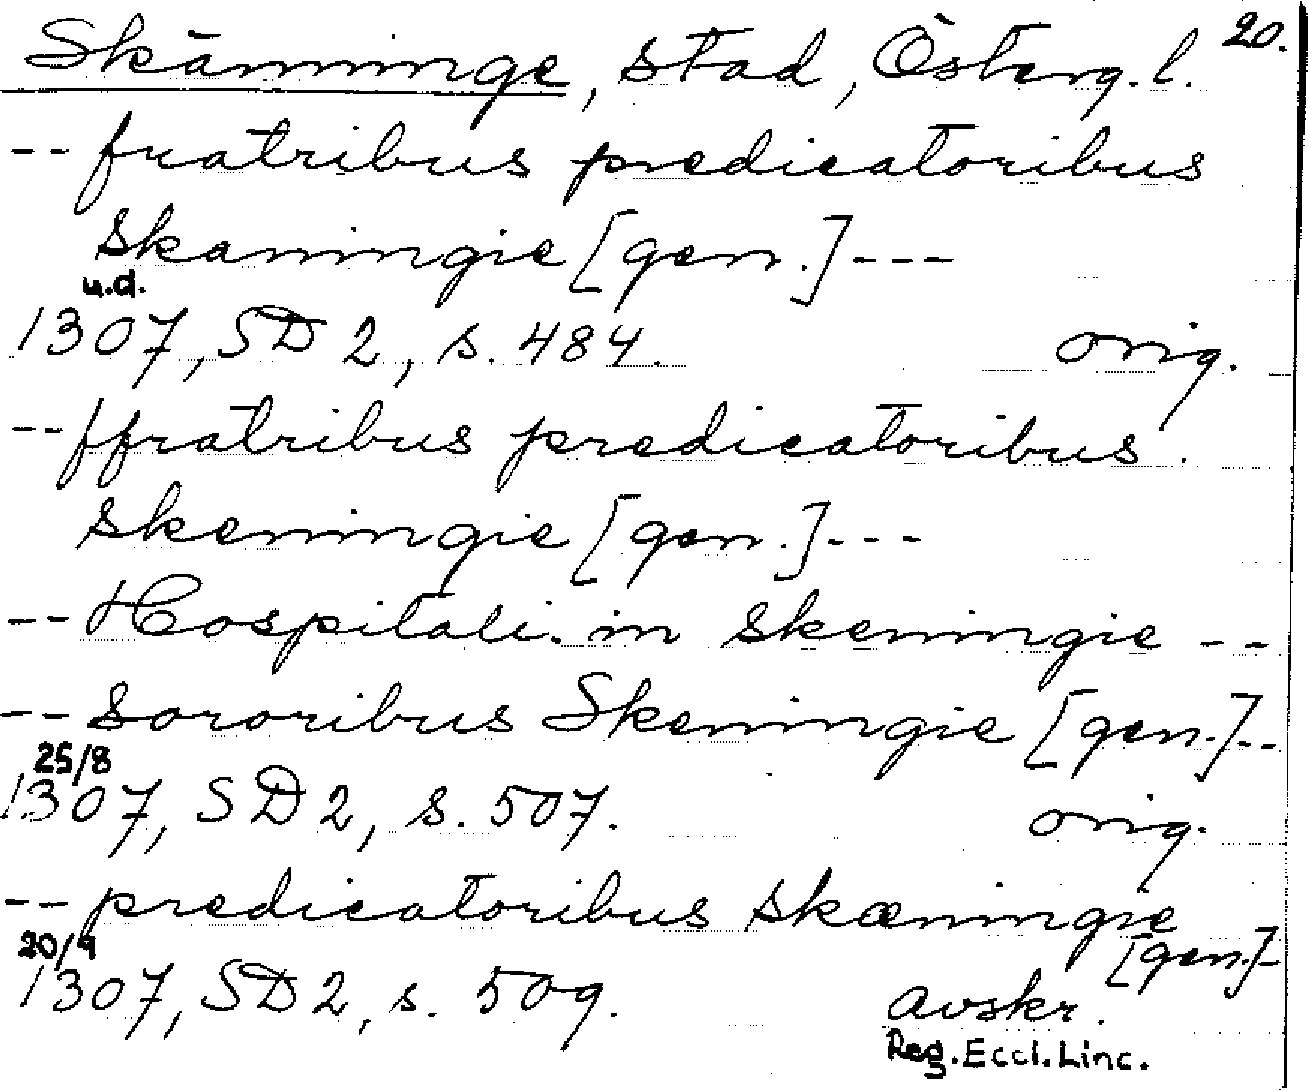 Skänninge, stad, Österg.l. 20.
-- fratribus predicatoribus
skaningie [gen.] ---
u.d.
1307, SD 2, s. 484. orig.
-- ffratribus predicatoribus
skeningie [gen.] ---
-- Hospitali in skeningie --
-- sororibus Skeningie [gen.] --
25/8
1307, SD 2, s. 507. orig.
-- predicatoribus skæningie
[gen.] -
20/9
1307, SD 2, s. 509. avskr.
Reg. Eccl. Linc.